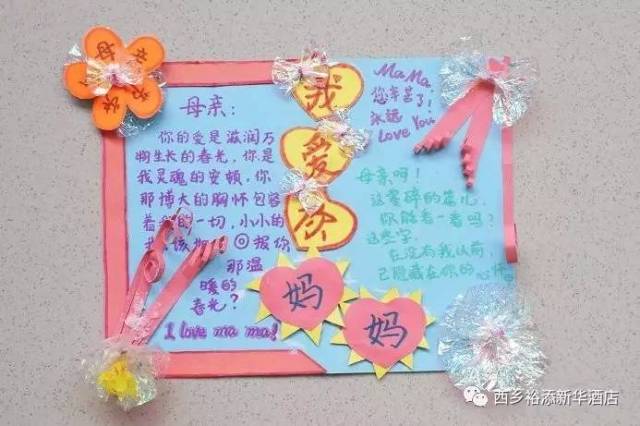 母亲:
你的爱是滋润万
物生长的春光,你是
我灵魂的安顿,你
那博大的胸怀包容
的一切,小小的
该 报你
那温
暖的
春光?
I love ma ma!
我
爱
妈
妈
MaMa
您辛苦了!
永远
Love You
母亲啊!
这零碎的篇儿,
你能看一看吗?
这些字,
在没有我以前,
已隐藏在你的心
西乡裕添新华酒店